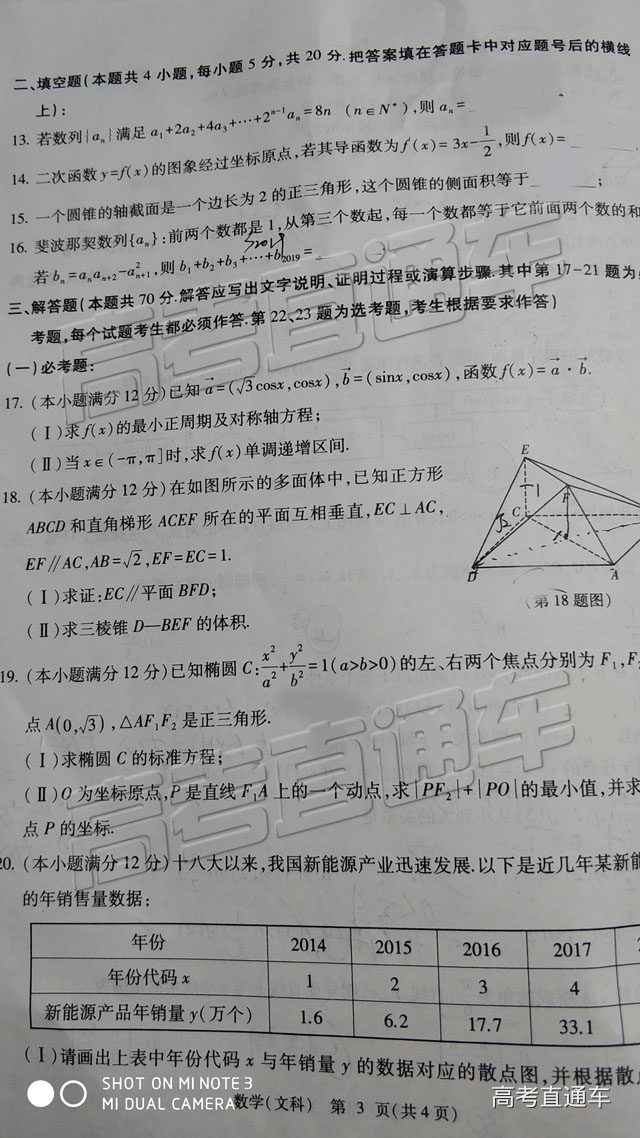 二、填空题(本题共 4 小题,每小题 5 分,共 20 分.把答案填在答题卡中对应题号后的横线
上):
13. 若数列{aₙ}满足 a₁+2a₂+4a₃+⋯+2ⁿ⁻¹aₙ=8n (n∈N*),则 aₙ=
14. 二次函数 y=f(x)的图象经过坐标原点,若其导函数为 f′(x)=3x-1/2,则f(x)=
15. 一个圆锥的轴截面是一个边长为 2 的正三角形,这个圆锥的侧面积等于 ;
16. 斐波那契数列{aₙ}:前两个数都是 1,从第三个数起,每一个数都等于它前面两个数的和
若 bₙ=aₙaₙ₊₂-a²ₙ₊₁,则 b₁+b₂+b₃+⋯+b₂₀₁₉=
三、解答题(本题共 70 分.解答应写出文字说明、证明过程或演算步骤.其中第 17-21 题为
考题,每个试题考生都必须作答.第 22、23 题为选考题,考生根据要求作答)
(一)必考题:
17. (本小题满分 12 分)已知 a⃗=(√3cosx,cosx),b⃗=(sinx,cosx),函数 f(x)=a⃗·b⃗.
(Ⅰ)求 f(x)的最小正周期及对称轴方程;
(Ⅱ)当 x∈(-π,π]时,求 f(x)单调递增区间.
18. (本小题满分 12 分)在如图所示的多面体中,已知正方形
ABCD 和直角梯形 ACEF 所在的平面互相垂直,EC⊥AC,
EF∥AC,AB=√2,EF=EC=1.
(Ⅰ)求证:EC∥平面 BFD;
(Ⅱ)求三棱锥 D—BEF 的体积.
E
F
C
1
D
A
(第 18 题图)
19. (本小题满分 12 分)已知椭圆 C:x²/a²+y²/b²=1(a>b>0)的左、右两个焦点分别为 F₁,F
点 A(0,√3),△AF₁F₂ 是正三角形.
(Ⅰ)求椭圆 C 的标准方程;
(Ⅱ)O 为坐标原点,P 是直线 F₁A 上的一个动点,求|PF₂|+|PO|的最小值,并求
点 P 的坐标.
20. (本小题满分 12 分)十八大以来,我国新能源产业迅速发展.以下是近几年某新能
的年销售量数据:
年份 2014 2015 2016 2017
年份代码 x 1 2 3 4
新能源产品年销量 y(万个) 1.6 6.2 17.7 33.1
(Ⅰ)请画出上表中年份代码 x 与年销量 y 的数据对应的散点图,并根据散
数学(文科) 第 3 页(共 4 页)
高考直通车
高考直通车
SHOT ON MI NOTE 3
MI DUAL CAMERA
高考直通车